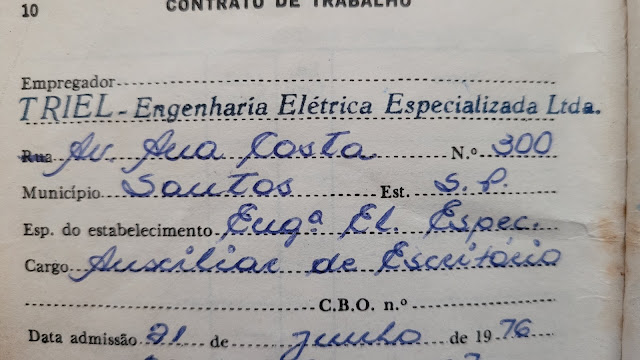 10 CONTRATO DE TRABALHO
Empregador
TRIEL - Engenharia Elétrica Especializada Ltda.
Rua Av Ana Costa N.º 300
Município Santos Est. S.P.
Esp. do estabelecimento Engª El. Espec.
Cargo Auxiliar de Escritório
C.B.O. n.º
Data admissão 21 de junho de 1976